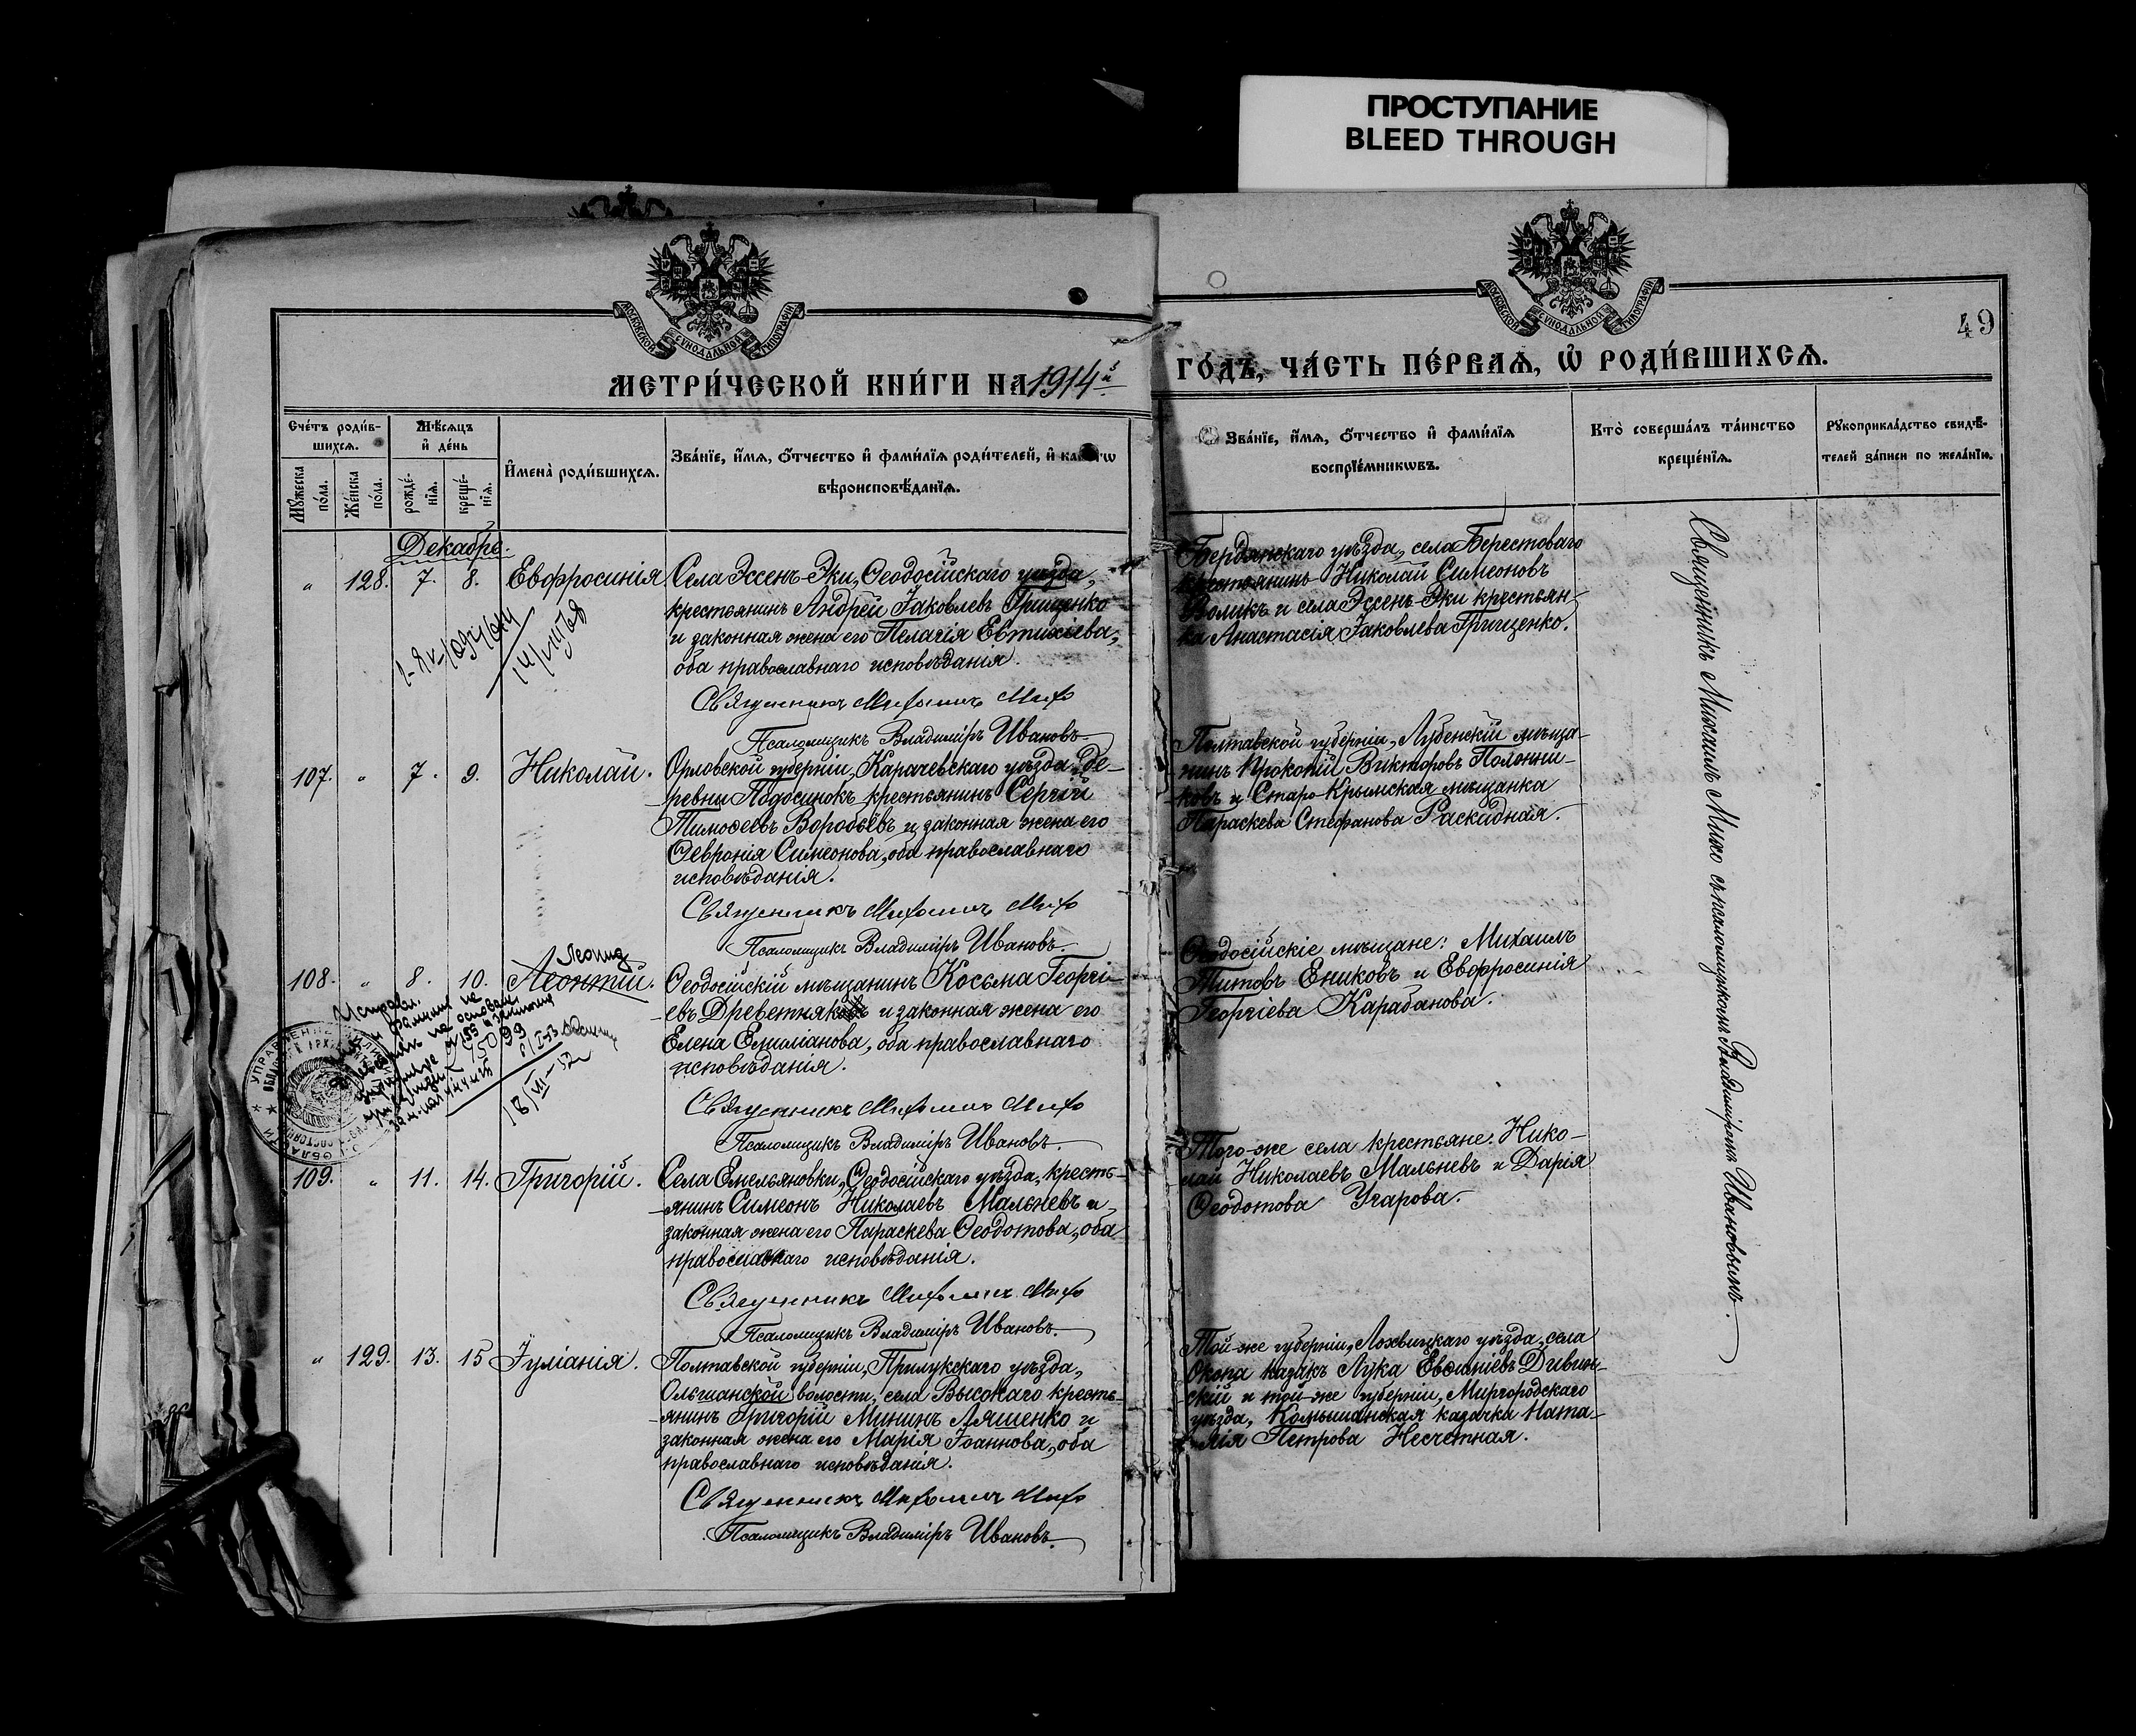 ПРОСТУПАНИЕ
BLEED THROUGH
МОСКОВСКОЙ СУНОДАЛЬНОЙ ТИПОГРАФІИ
МОСКОВСКОЙ СУНОДАЛЬНОЙ ТИПОГРАФІИ
49
МЕТРИ́ЧЕСКОЙ КНИ́ГИ НА 1914й
ГО́ДЪ, ЧА́СТЬ ПЕ́РВАѦ, Ѡ҆ РОДИ́ВШИХСѦ.
Сче́тъ роди́в-
шихсѧ.
Мѣ́сѧцъ
и҆ де́нь
Мꙋ́жеска
по́ла.
Же́нска
по́ла.
рожде́-
нїѧ.
креще́-
нїѧ.
И҆мена̀ роди́вшихсѧ.
Зва́нїе, и҆́мѧ, ѻ҆́тчество и҆ фами́лїѧ роди́телей, и҆
вѣроисповѣ́данїѧ.
Зва́нїе, и҆́мѧ, ѻ҆́тчество и҆ фами́лїѧ
воспрїе́мникѡвъ.
Кто̀ соверша́лъ та́инство
креще́нїѧ.
Рꙋкоприкла́дство свидѣ́-
телей за́писи по жела́нїю.
Декабрь.
" 128. 7. 8. Евфросинія
Села Эссенъ-Эки, Ѳеодосійскаго уѣзда,
крестьянинъ Андрей Іаковлевъ Грищенко
и законная жена его Пелагія Евтихіева,
оба православнаго исповѣданія.
Священникъ Михаилъ Михо
Псаломщикъ Владиміръ Ивановъ
Бердянскаго уѣзда, села Берестоваго
крестьянинъ Николай Симеоновъ
Воликъ и села Эссенъ-Эки крестьян-
ка Анастасія Іаковлева Грищенко.
107. " 7. 9. Николай.
Орловской губерніи, Карачевскаго уѣзда, де-
ревни Подосинокъ крестьянинъ Сергій
Тимоѳеевъ Воробьёвъ и законная жена его
Ѳевронія Симеонова, оба православнаго
исповѣданія.
Священникъ Михаилъ Михо
Псаломщикъ Владиміръ Ивановъ.
Полтавской губерніи, Лубенскій мѣща-
нинъ Прокопій Викторовъ Полонни-
ковъ и Старо-Крымская мѣщанка
Параскева Стефанова Раскидная.
Леонид
108. " 8. 10. Леонтій.
Ѳеодосійскій мѣщанинъ Косьма Георгі-
евъ Древетняк и законная жена его
Елена Емиліанова, оба православнаго
исповѣданія.
Священникъ Михаилъ Михо
Псаломщикъ Владиміръ Ивановъ.
Ѳеодосійскіе мѣщане: Михаилъ
Титовъ Ениковъ и Евфросинія
Георгіева Карабанова.
18/VI-52
109. " 11. 14. Григорій.
Села Емельяновки, Ѳеодосійскаго уѣзда, кресть-
янинъ Симеонъ Николаевъ Мальневъ и
законная жена его Параскева Ѳеодотова, оба
православнаго исповѣданія.
Священникъ Михаилъ Михо
Псаломщикъ Владиміръ Ивановъ.
Того-же села крестьяне: Нико-
лай Николаевъ Мальневъ и Дарія
Ѳеодотова Угарова.
" 129. 13. 15 Іуліанія.
Полтавской губерніи, Прилукскаго уѣзда,
Ольшанской волости, села Высокаго кресть-
янинъ Григорій Мининъ Ляшенко и
законная жена его Марія Іоаннова, оба
православнаго исповѣданія.
Священникъ Михаилъ Михо
Псаломщикъ Владиміръ Ивановъ.
Той-же губерніи, Лохвицкаго уѣзда, села
Окопа казакъ Лука Евѳиміевъ Дивин-
скій и той-же губерніи, Миргородскаго
уѣзда, Комышанская казачка Ната-
лія Петрова Несчетная.
Священникъ Михаилъ Михо съ псаломщикомъ Владиміромъ Ивановымъ.